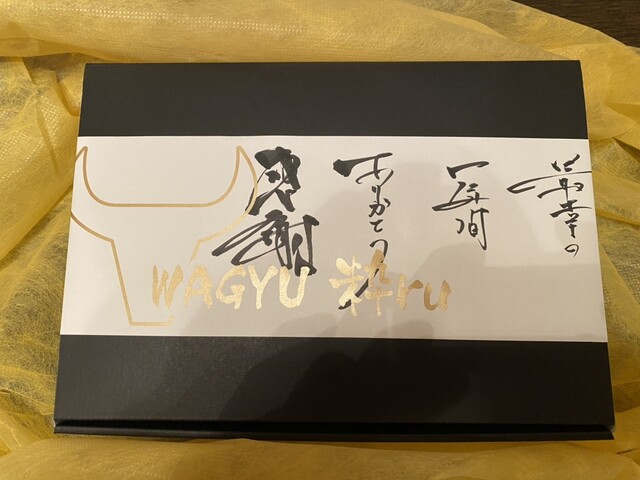 最幸の
一年間
ありがとう
感謝
WAGYU 粋ru